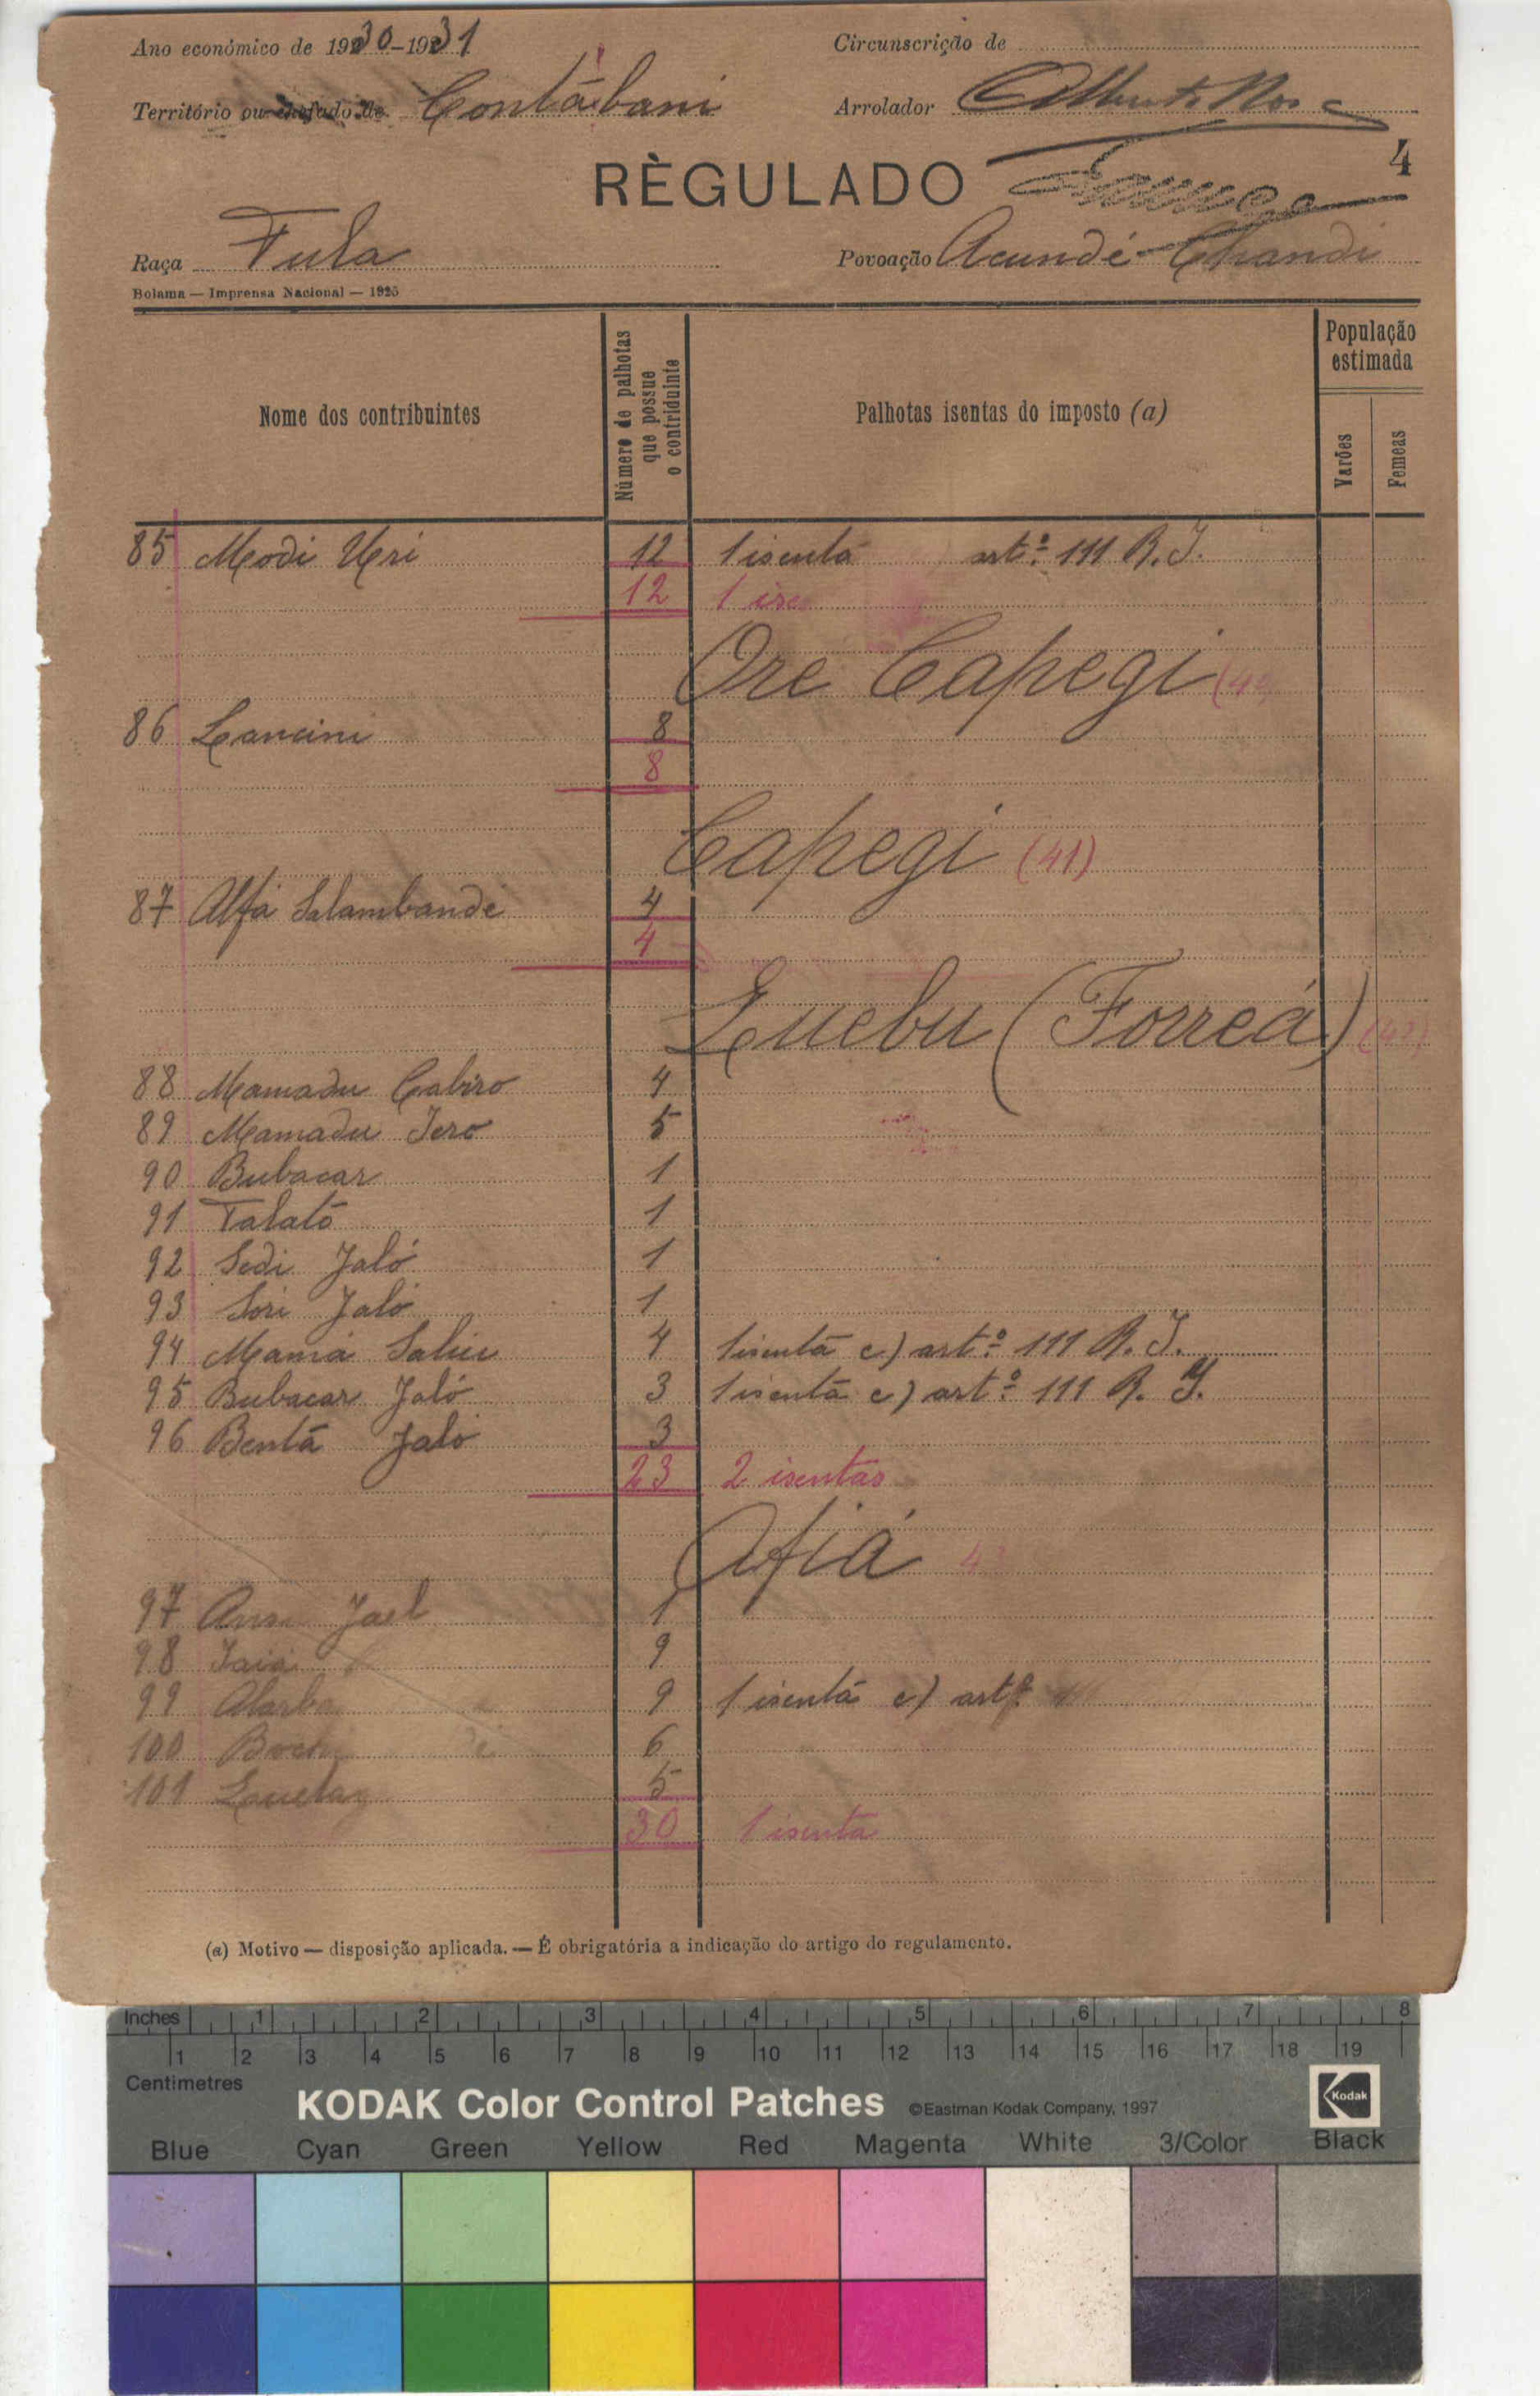 Ano económico de 1930-1931
Circunscrição de
Território ou chefado de Contábani
Arrolador Alberto
4
RÈGULADO
Raça Fula
Povoação Acundé-Chandi
Bolama — Imprensa Nacional — 1925
Nome dos contribuintes
Número de palhotas que possue o contriduinte
Palhotas isentas do imposto (a)
População estimada
Varões
Femeas
85 Modi Uri 12 1 isenta artº 111 R. I.
12 1 ise
Ore Capegi
86 Lancini 8
8
Capegi (41)
87 Alfa Salambandé 4
4
Luebu (Forreá) (42)
88 Mamadu Cabiro 4
89 Mamadu Jero 5
90 Bubacar 1
91 Talató 1
92 Sedi Jaló 1
93 Sori Jaló 1
94 Mamá Saliu 4 1 isenta c) artº 111 R. I.
95 Bubacar Jaló 3 1 isenta c) artº 111 R. I.
96 Bentá Jaló 3
23 2 isentas
Afiá 43
97 Jael 1
98 Jaiá 9
99 9 1 isenta c) artº
100 6
101 5
30 1 isenta
(a) Motivo — disposição aplicada. — É obrigatória a indicação do artigo do regulamento.
Inches 1 2 3 4 5 6 7 8
1 2 3 4 5 6 7 8 9 10 11 12 13 14 15 16 17 18 19
Centimetres
KODAK Color Control Patches ©Eastman Kodak Company, 1997 Kodak
Blue Cyan Green Yellow Red Magenta White 3/Color Black